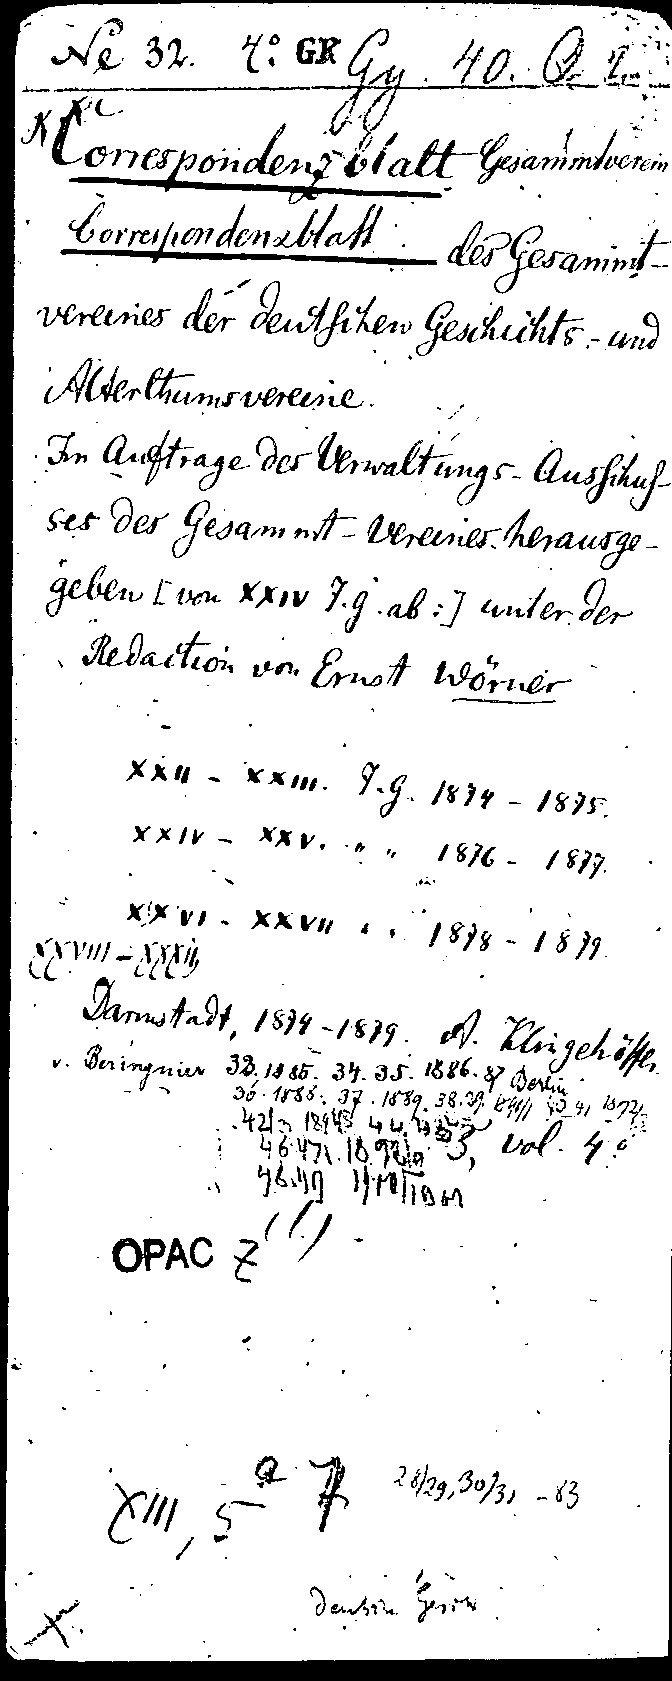 Ne 32. 4° GR Gy. 40.
Correspondenzblatt Gesammtverein
Correspondenzblatt des Gesammt-
vereines der deutschen Geschichts- und
Alterthumsvereine.
Im Auftrage des Verwaltungs-Ausschus-
ses des Gesammt-Vereines herausge-
geben [von XXIV J.g. ab:] unter der
Redaction von Ernst Wörner
XXII - XXIII. J.g. 1874 - 1875.
XXIV - XXV. " " 1876 - 1877.
XXVI - XXVII " " 1878 - 1879
XXVIII - XXXII
Darmstadt, 1874-1879. Klingelhöffer
v. Beringuier 33. 1885. 34. 35. 1886. 87 Berlin
36. 1888. 37. 1889. 38. 39.
3, vol. 4°
OPAC Z
XIII, 5 a 28/29, 30/31 - 83